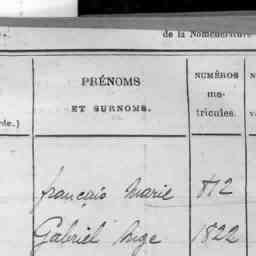 de la Nomenclature
PRÉNOMS
ET SURNOMS.
NUMÉROS
ma-
tricules.
rde.)
français Marie 812
Gabriel Ange 1822